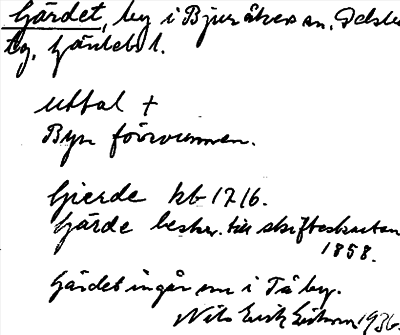 Gärdet, by i Bjuråkers sn, Delsbo
tg, Gävlebl.
uttal +
Byn försvunnen.
Gierde kb 1716.
Gärde beskr. till skifteskartan
1858.
Gärdet ingår nu i Tå by.
Nils Erik Eriksson 1936.